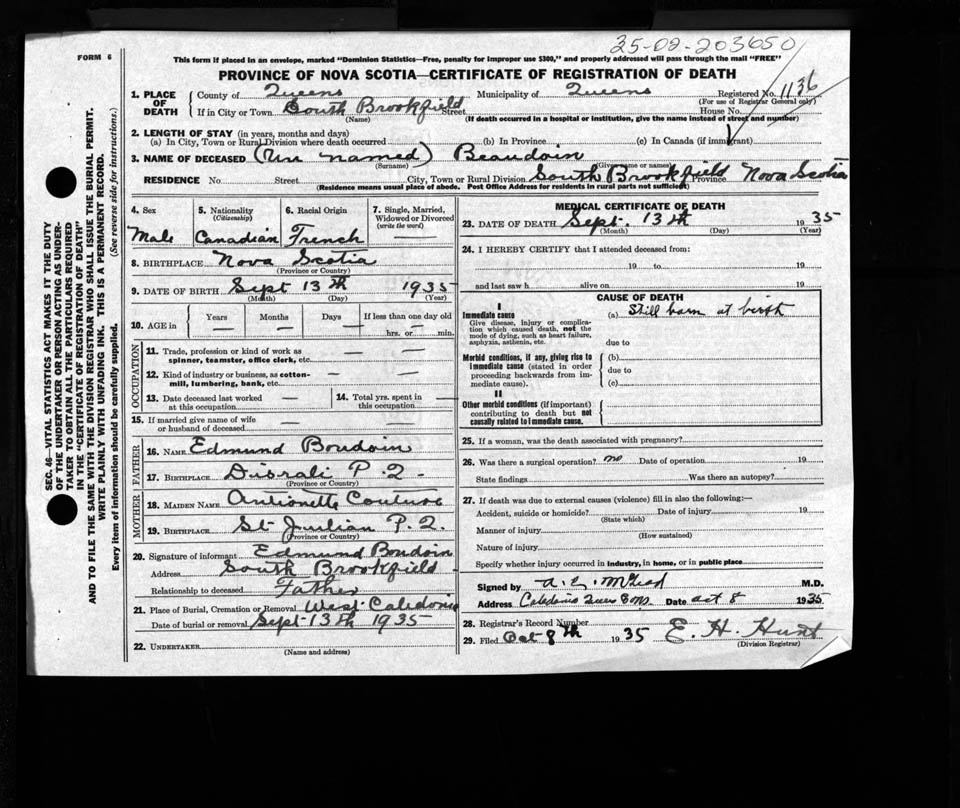 35-02-203650
FORM 6
This form if placed in an envelope, marked "Dominion Statistics—Free, penalty for improper use $300," and properly addressed will pass through the mail "FREE"
PROVINCE OF NOVA SCOTIA—CERTIFICATE OF REGISTRATION OF DEATH
1. PLACE OF DEATH County of Queens Municipality of Queens Registered No. 1136
(For use of Registrar General only)
If in City or Town South Brookfield Street House No.
(Name) (If death occurred in a hospital or institution, give the name instead of street and number)
2. LENGTH OF STAY (in years, months and days)
(a) In City, Town or Rural Division where death occurred (b) In Province (c) In Canada (if immigrant)
3. NAME OF DECEASED (Un named) Beaudoin
(Surname) (Given name or names)
RESIDENCE No Street City, Town or Rural Division South Brookfield Province Nova Scotia
(Residence means usual place of abode. Post Office Address for residents in rural parts not sufficient)
4. Sex 5. Nationality 6. Racial Origin 7. Single, Married, Widowed or Divorced
(Citizenship) (write the word)
Male Canadian French —
8. BIRTHPLACE Nova Scotia
(Province or Country)
9. DATE OF BIRTH Sept 13th 1935
(Month) (Day) (Year)
10. AGE in Years Months Days If less than one day old
— — — — hrs. or — min.
OCCUPATION
11. Trade, profession or kind of work as spinner, teamster, office clerk, etc. — —
12. Kind of industry or business, as cotton-mill, lumbering, bank, etc. — —
13. Date deceased last worked at this occupation — 14. Total yrs. spent in this occupation —
15. If married give name of wife or husband of deceased —
FATHER
16. NAME Edmund Boudoin
17. BIRTHPLACE Disrali P.Q-
(Province or Country)
MOTHER
18. MAIDEN NAME Antionette Couture
19. BIRTHPLACE St. Julian P.Q.
(Province or Country)
20. Signature of informant Edmund Boudoin
Address South Brookfield
Relationship to deceased Father
21. Place of Burial, Cremation or Removal West Caledonia
Date of burial or removal Sept 13th 1935
22. UNDERTAKER
(Name and address)
MEDICAL CERTIFICATE OF DEATH
23. DATE OF DEATH Sept. 13th 1935
(Month) (Day) (Year)
24. I HEREBY CERTIFY that I attended deceased from:
19 to 19
and last saw h alive on 19
CAUSE OF DEATH
I
Immediate cause (a) Still born at birth
Give disease, injury or complication which caused death, not the mode of dying, such as heart failure, asphyxia, asthenia, etc.
due to
Morbid conditions, if any, giving rise to immediate cause (stated in order proceeding backwards from immediate cause).
(b)
due to
(c)
II
Other morbid conditions (if important) contributing to death but not causally related to immediate cause.
25. If a woman, was the death associated with pregnancy?
26. Was there a surgical operation? no Date of operation 19
State findings Was there an autopsy?
27. If death was due to external causes (violence) fill in also the following:—
Accident, suicide or homicide? Date of injury 19
(State which)
Manner of injury
(How sustained)
Nature of injury
Specify whether injury occurred in Industry, in home, or in public place
Signed by M.D.
Address Caledonia Queens Date Oct 8 1935
28. Registrar's Record Number
29. Filed Oct 8th 1935 E. H. Hunt
(Division Registrar)
SEC. 46—VITAL STATISTICS ACT MAKES IT THE DUTY
OF THE UNDERTAKER OR PERSON ACTING AS UNDER-
TAKER TO OBTAIN ALL THE PARTICULARS REQUIRED
IN THE "CERTIFICATE OF REGISTRATION OF DEATH"
AND TO FILE THE SAME WITH THE DIVISION REGISTRAR WHO SHALL ISSUE THE BURIAL PERMIT.
WRITE PLAINLY WITH UNFADING INK. THIS IS A PERMANENT RECORD.
Every item of information should be carefully supplied. (See reverse side for instructions.)